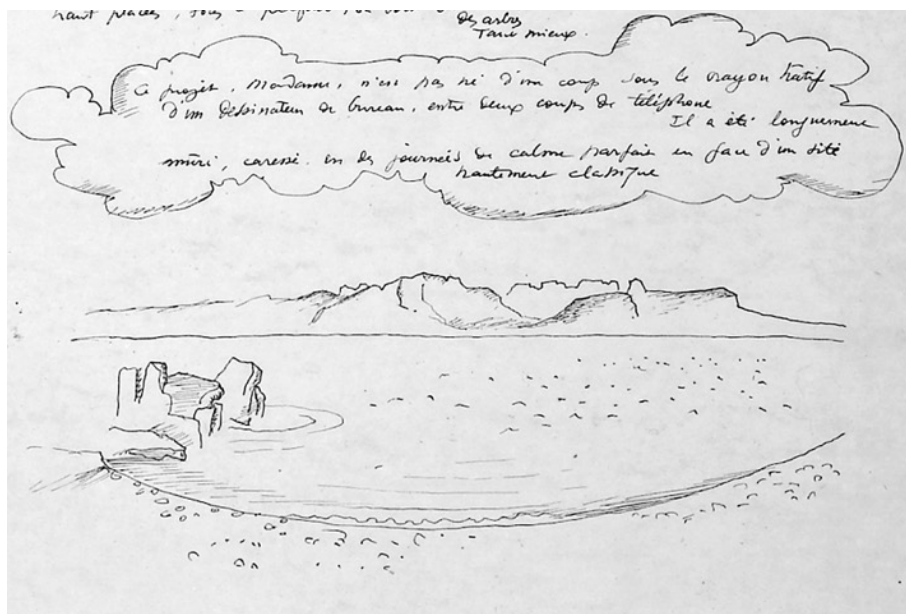 haut placés, sous
des arbres
Tant mieux.
Ce projet, Madame, n'est pas né d'un coup sous le crayon hâtif
d'un dessinateur de bureau, entre deux coups de téléphone
Il a été longuement
mûri, caressé en des journées de calme parfait en face d'un site
hautement classique